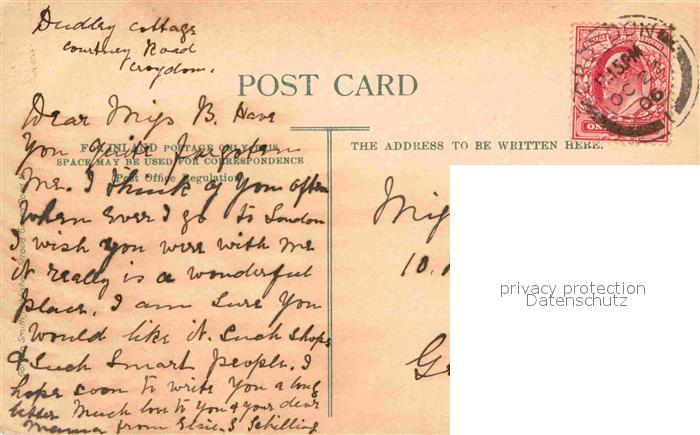 Dudley Cottage
Courtney Road
Croydon.
POST CARD
Dear Miss B. Have
FOR INLAND POSTAGE ONLY THIS
SPACE MAY BE USED FOR CORRESPONDENCE
Post Office Regulation
you quite forgotten
me. I think of you often
when ever I go to London
I wish you were with me
it really is a wonderful
place. I am sure you
would like it. Such shops
& such smart people. I
hope soon to write you a long
letter Much love to you & your dear
Mama from Elsie. S Schilling
THE ADDRESS TO BE WRITTEN HERE.
CROYDON
7.15PM
OC 2
06
ONE
Miss
10.
Gr
privacy protection
Datenschutz